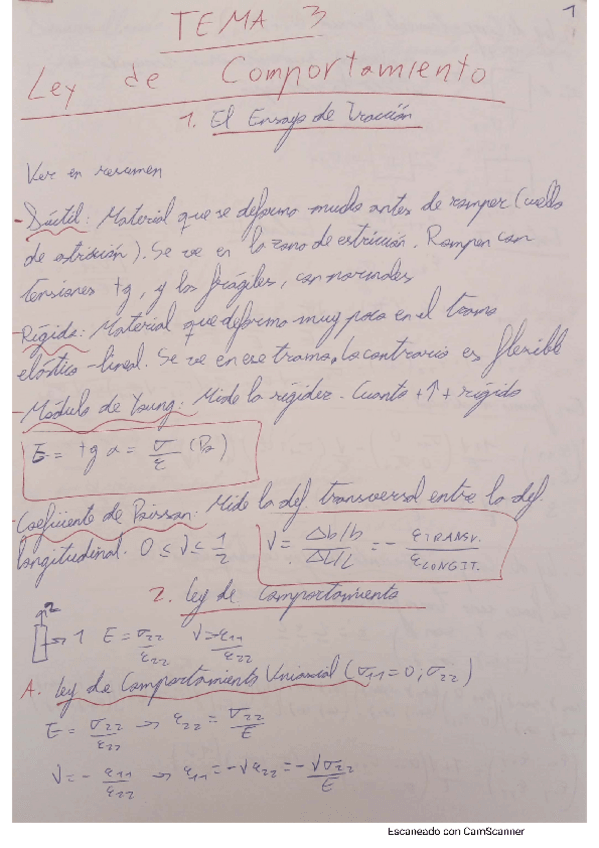 1
TEMA 3
Ley de Comportamiento
1. El Ensayo de Tracción
Ver en resumen
- Dúctil: Material que se deforma mucho antes de romper (cuello
de estricción). Se ve en la zona de estricción. Rompen con
tensiones tg, y los frágiles, con normales
- Rígido: Material que deforma muy poco en el tramo
elástico-lineal. Se ve en ese tramo, lo contrario es flexible
- Módulo de Young: Mide la rigidez. Cuanto +↑ + rígido
E = tg α = σ/ε (Pa)
- Coeficiente de Poisson: Mide la def. transversal entre la def.
longitudinal. 0 ≤ ν ≤ 1/2 ν = Δb/b / ΔL/L = - εTRANSV. / εLONGIT.
2. Ley de comportamiento
2 → 1 E = σ22/ε22 ν = ε11/ε22
A. Ley de Comportamiento Uniaxial (σ11 = 0; σ22)
E = σ22/ε22 → ε22 = σ22/E
ν = - ε11/ε22 → ε11 = -νε22 = - νσ22/E
Escaneado con CamScanner